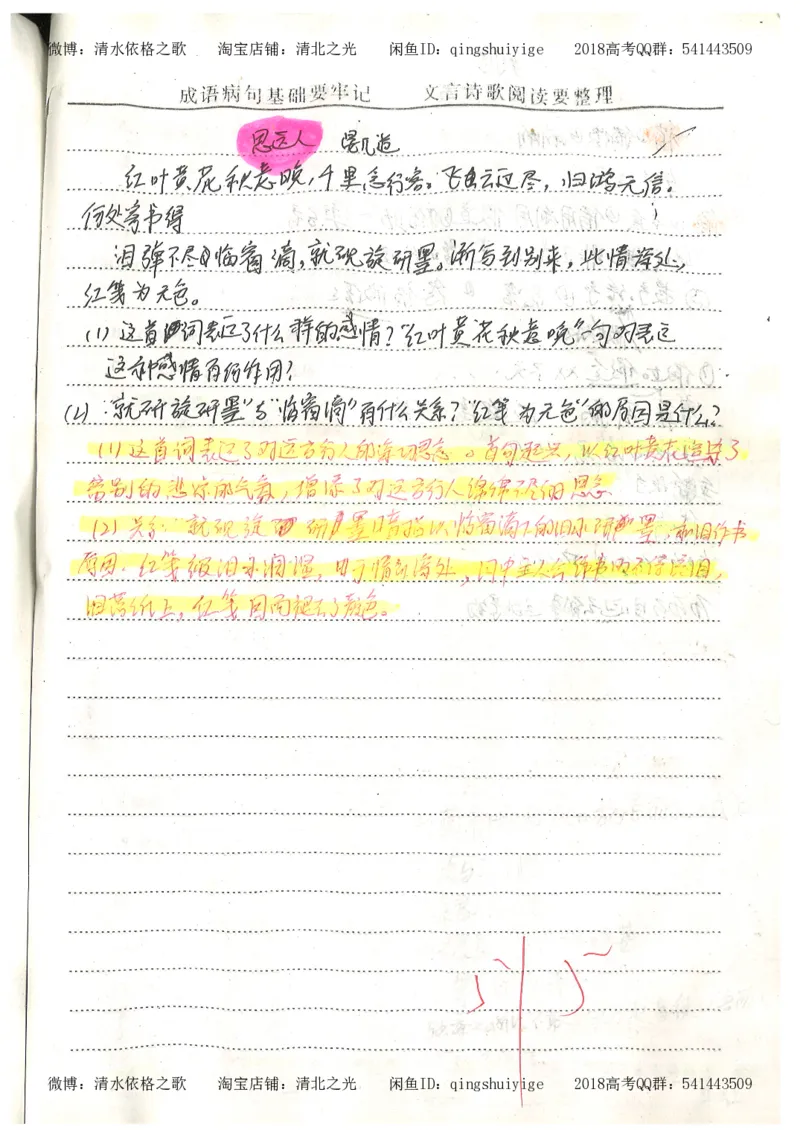 微博：清水依格之歌 淘宝店铺：清北之光 闲鱼ID：qingshuiyige 2018高考QQ群：541443509
成语病句基础要牢记 文言诗歌阅读要整理
思远人 晏几道
红叶黄花秋意晚，千里念行客。飞云过尽，归鸿无信。
何处寄书得
泪弹不尽临窗滴，就砚旋研墨。渐写到别来，此情深处，
红笺为无色。
(1) 这首词表达了什么样的感情？"红叶黄花秋意晚"句对表达
这种感情有何作用？
(2) "就砚旋研墨"与"临窗滴"有什么关系？"红笺为无色"的原因是什么？
(1) 这首词表达了对远方行人的深切思念。首句起兴，以红叶黄花渲染了
离别的悲凉的气氛，增添了对远方行人绵绵不尽的思念
(2) 关系："就砚旋研墨"暗指以临窗滴下的泪水研墨，和泪作书
原因：红笺被泪水润湿，由于情到深处，词中主人公作书时不停流泪，
泪落纸上，红笺因而褪去了颜色。
微博：清水依格之歌 淘宝店铺：清北之光 闲鱼ID：qingshuiyige 2018高考QQ群：541443509